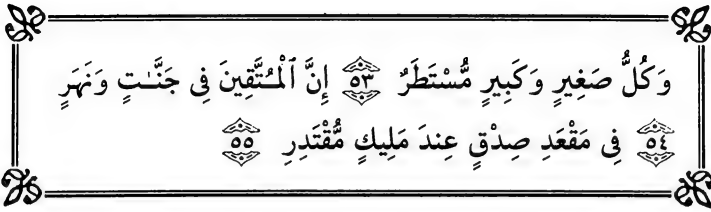 وَكُلُّ صَغِيرٍ وَكَبِيرٍ مُّسْتَطَرٌ ٥٣ إِنَّ ٱلْمُتَّقِينَ فِى جَنَّـٰتٍ وَنَهَرٍ
٥٤ فِى مَقْعَدِ صِدْقٍ عِندَ مَلِيكٍ مُّقْتَدِرِ ٥٥